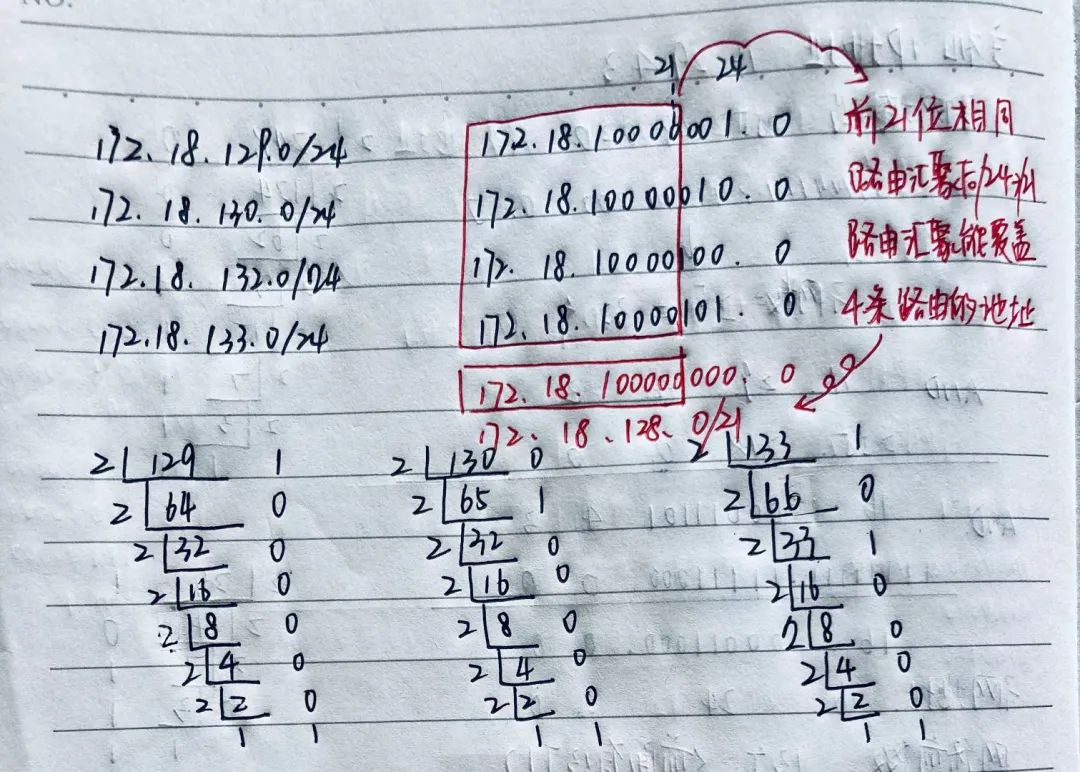 NO.
21 24
172.18.129.0/24 172.18.10000001.0 前21位相同
172.18.130.0/24 172.18.10000010.0 路由汇聚后/24→/21
172.18.132.0/24 172.18.10000100.0 路由汇聚能覆盖
172.18.133.0/24 172.18.10000101.0 4条路由的地址
172.18.10000000.0
172.18.128.0/21
2 129 1 2 130 0 2 133 1
2 64 0 2 65 1 2 66 0
2 32 0 2 32 0 2 33 1
2 16 0 2 16 0 2 16 0
2 8 0 2 8 0 2 8 0
2 4 0 2 4 0 2 4 0
2 2 0 2 2 0 2 2 0
1 1 1 1 1 1